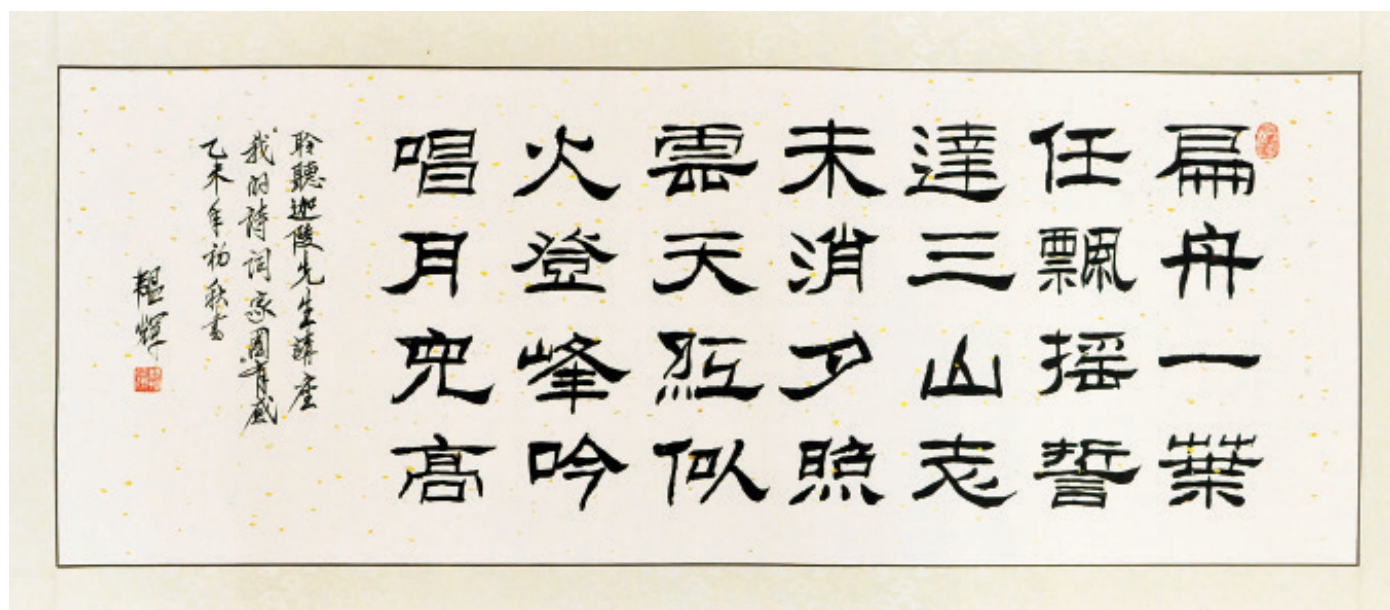 扁舟一葉
任飄摇誓
達三山志
未消夕照
雲天紅似
火登峰吟
唱月兜高
聆聽迦陵先生講座
我的詩詞家園有感
乙未年初秋書